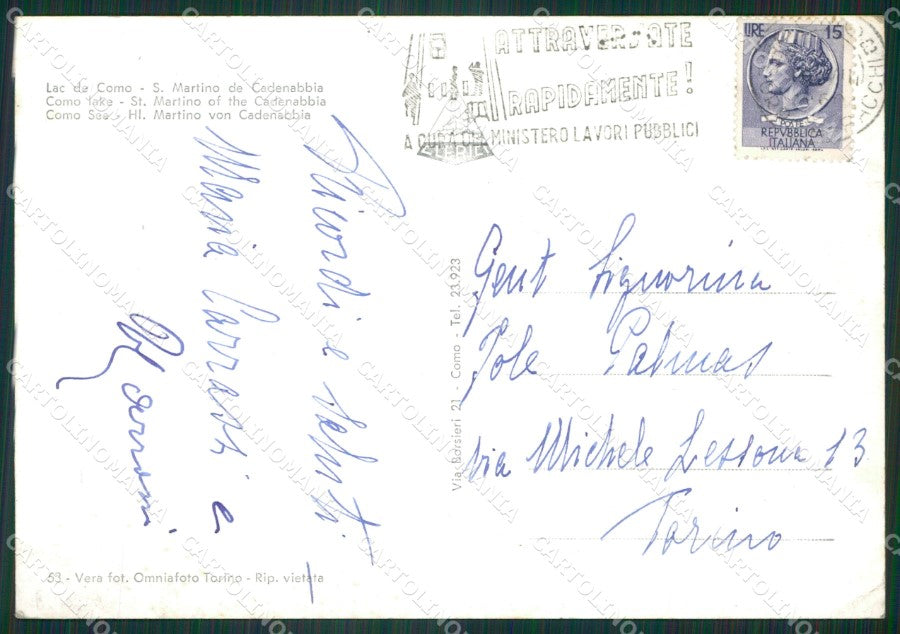 Lac de Como - S. Martino de Cadenabbia
Como lake - St. Martino of the Cadenabbia
Como See - Hl. Martino von Cadenabbia
ATTRAVERSATE
RAPIDAMENTE!
A CURA DEL MINISTERO LAVORI PUBBLICI
LIRE 15
POSTE
REPVBBLICA
ITALIANA
Ricordi e saluti
Maria
e
Gent Signorina
Jole Palmas
Via Michele Lessona 13
Torino
Via Borsieri 21 - Como - Tel. 23.923
53 - Vera fot. Omniafoto Torino - Rip. vietata
CARTOLINOMANIA